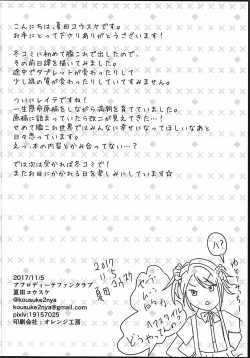 こんにちは。夏田コウスケです。
お手にとって下さりありがとうございます!
冬コミに初めて艦これで出したので、
冬の前日譚を描いてみました。
途中でタブレットが変わったりして
少し線の質が変わったりしていてすみません。
ついにレイテ!
一生懸命原稿をしながら満潮を育てていました。
原稿に詰まってたら改二が見えてきた…!
せめて艦これ世界ではみんなに幸せになってほしいなと
思います。
えっ、本の内容とかみ合ってない?
では次は受かれば冬コミで!
お目にかかれる日を楽しみにしています。
ハ?
2017
11.5
夏田コウスケ
2017/11/5
アフロディーテファンクラブ
夏田コウスケ
@kousuke2nya
kousuke2nya@gmail.com
pixiv:19157025
印刷会社:オレンジ工房